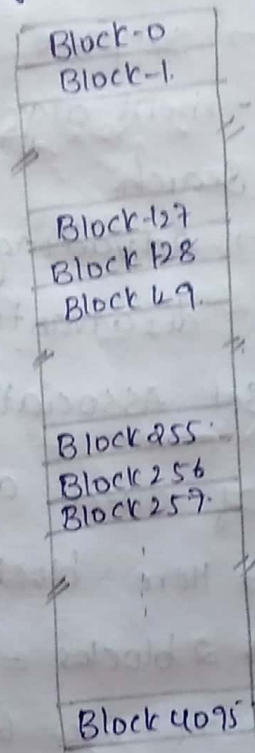 Block-0
Block-1.
Block-127
Block 128
Block 129.
Block 255.
Block 256
Block 257.
Block 4095